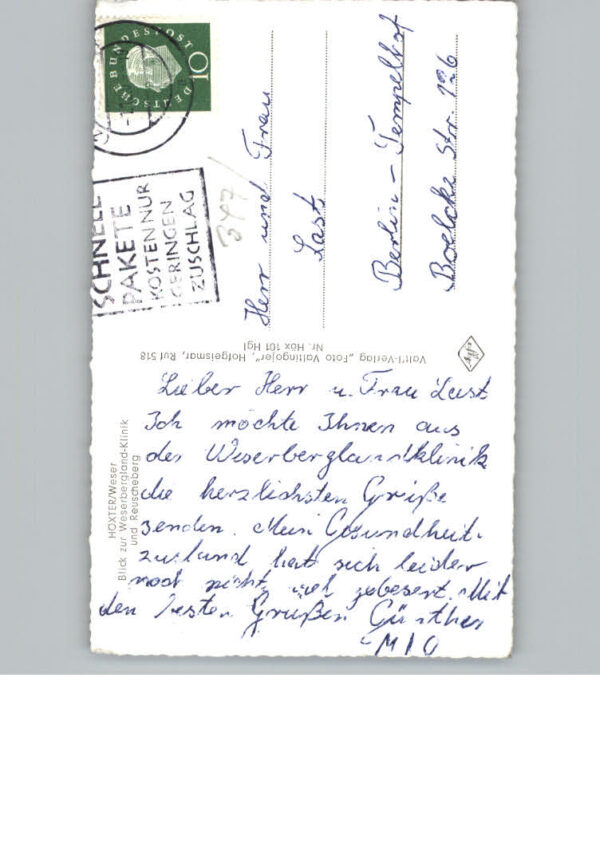 DEUTSCHE BUNDESPOST
10
SCHNELL
PAKETE
KOSTEN NUR
GERINGEN
ZUSCHLAG
347/
Herr und Frau
Last
Berlin – Tempelhof
Boelcke Str. 126
Valt'l-Verlag „Foto Valtingojer“, Hofgeismar, Ruf 518
Nr. Höx 101 Hgl
HÖXTER/Weser
Blick zur Weserbergland-Klinik
und Reuscheberg
Lieber Herr u. Frau Last
Ich möchte Ihnen aus
der Weserberglandklinik
die herzlichsten Grüße
senden. Mein Gesundheit-
zustand hat sich leider
noch nicht viel gebesert. Mit
den besten Grüßen Günther